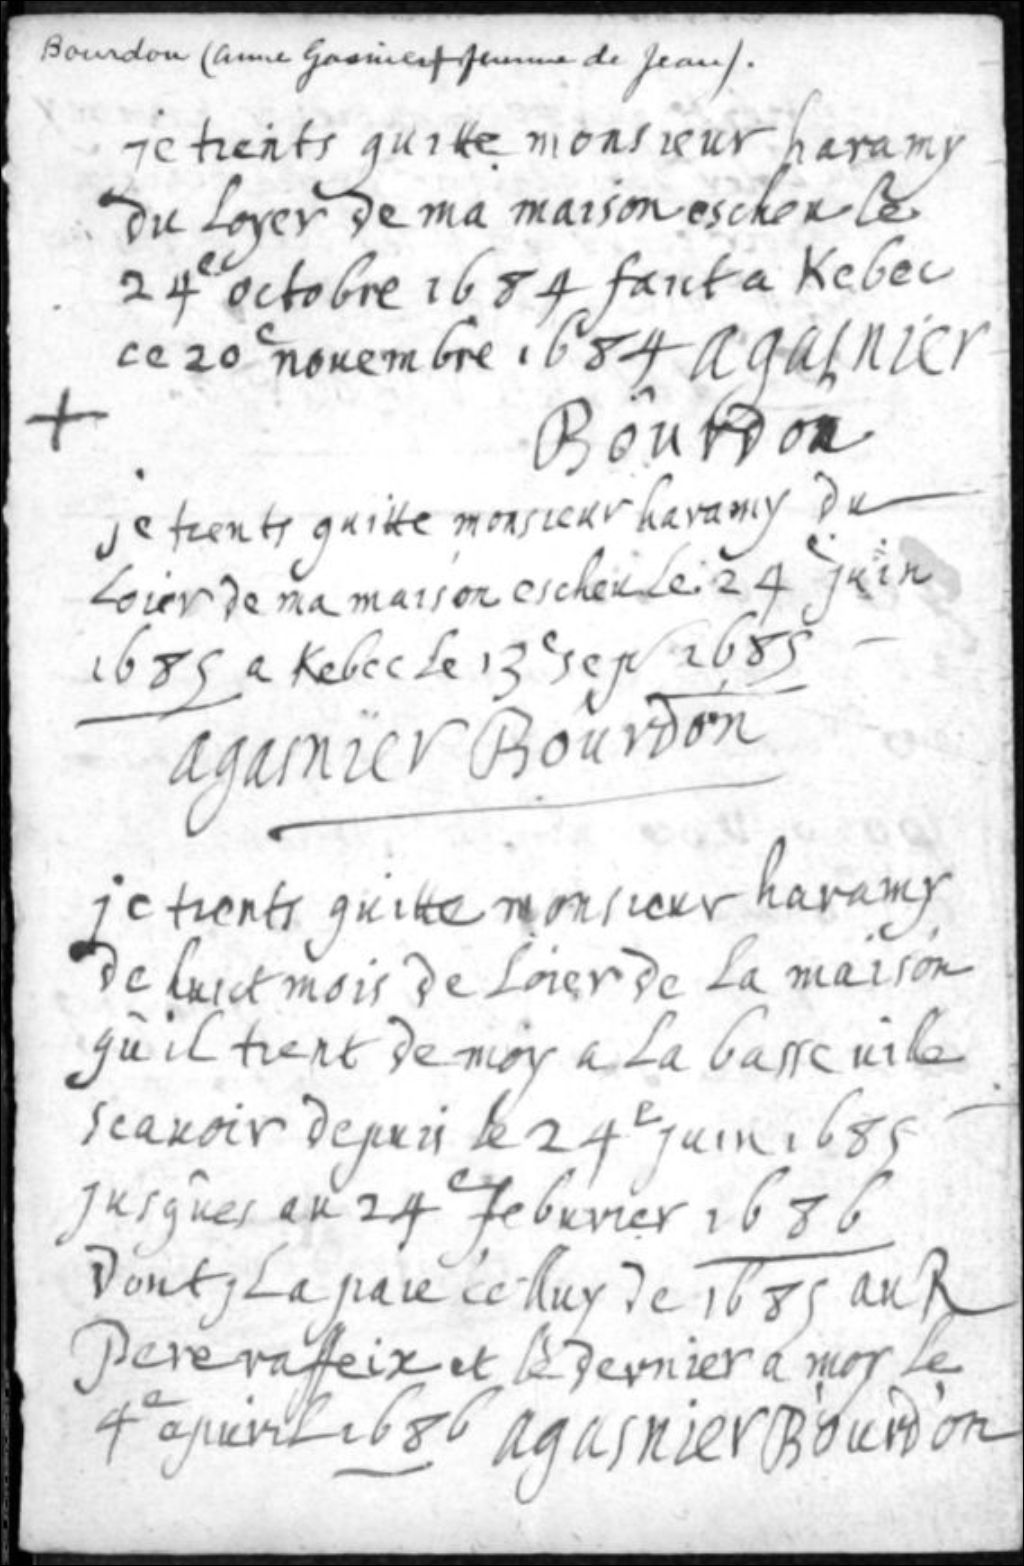 Bourdon (Anne Gasnier femme de Jean).
je tients quitte monsieur haramy
du Loyer de ma maison escheu le
24e octobre 1684 faict a Kebec
ce 20e nouembre 1684 agasnier
Bourdon
+
je tients quitte monsieur haramy du
Loier de ma maison escheu Le 24e juin
1685 a Kebec Le 13e sep 1685
agasnier Bourdon
je tients quitte monsieur haramy
de huict mois de Loier de La maison
qu il tient de moy a La basse uille
scauoir depuis le 24e juin 1685
jusques au 24e feburier 1686
Dont jL a paié celluy de 1685 au R
Pere raffeix et le dernier a moy le
4e apuril 1686 agasnier Bourdon